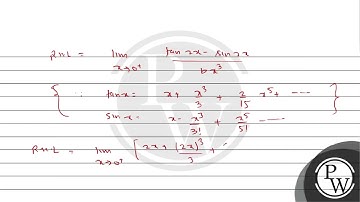 RHL = lim x→0⁺ (tan2x - sin2x) / bx³
{ ∵ tanx = x + x³/3 + 2/15 x⁵ + ---- }
sinx = x - x³/3! + x⁵/5! ----
RHL = lim x→0⁺ [ 2x + (2x)³/3 + -
PW